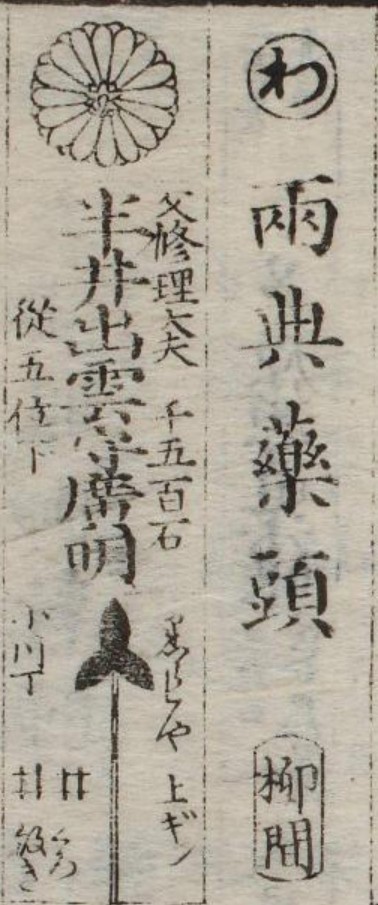 わ 兩典藥頭 柳間
父修理大夫 千五百石
半井出雲守廣明
從五位下
黒らしや 上ギン
小川丁